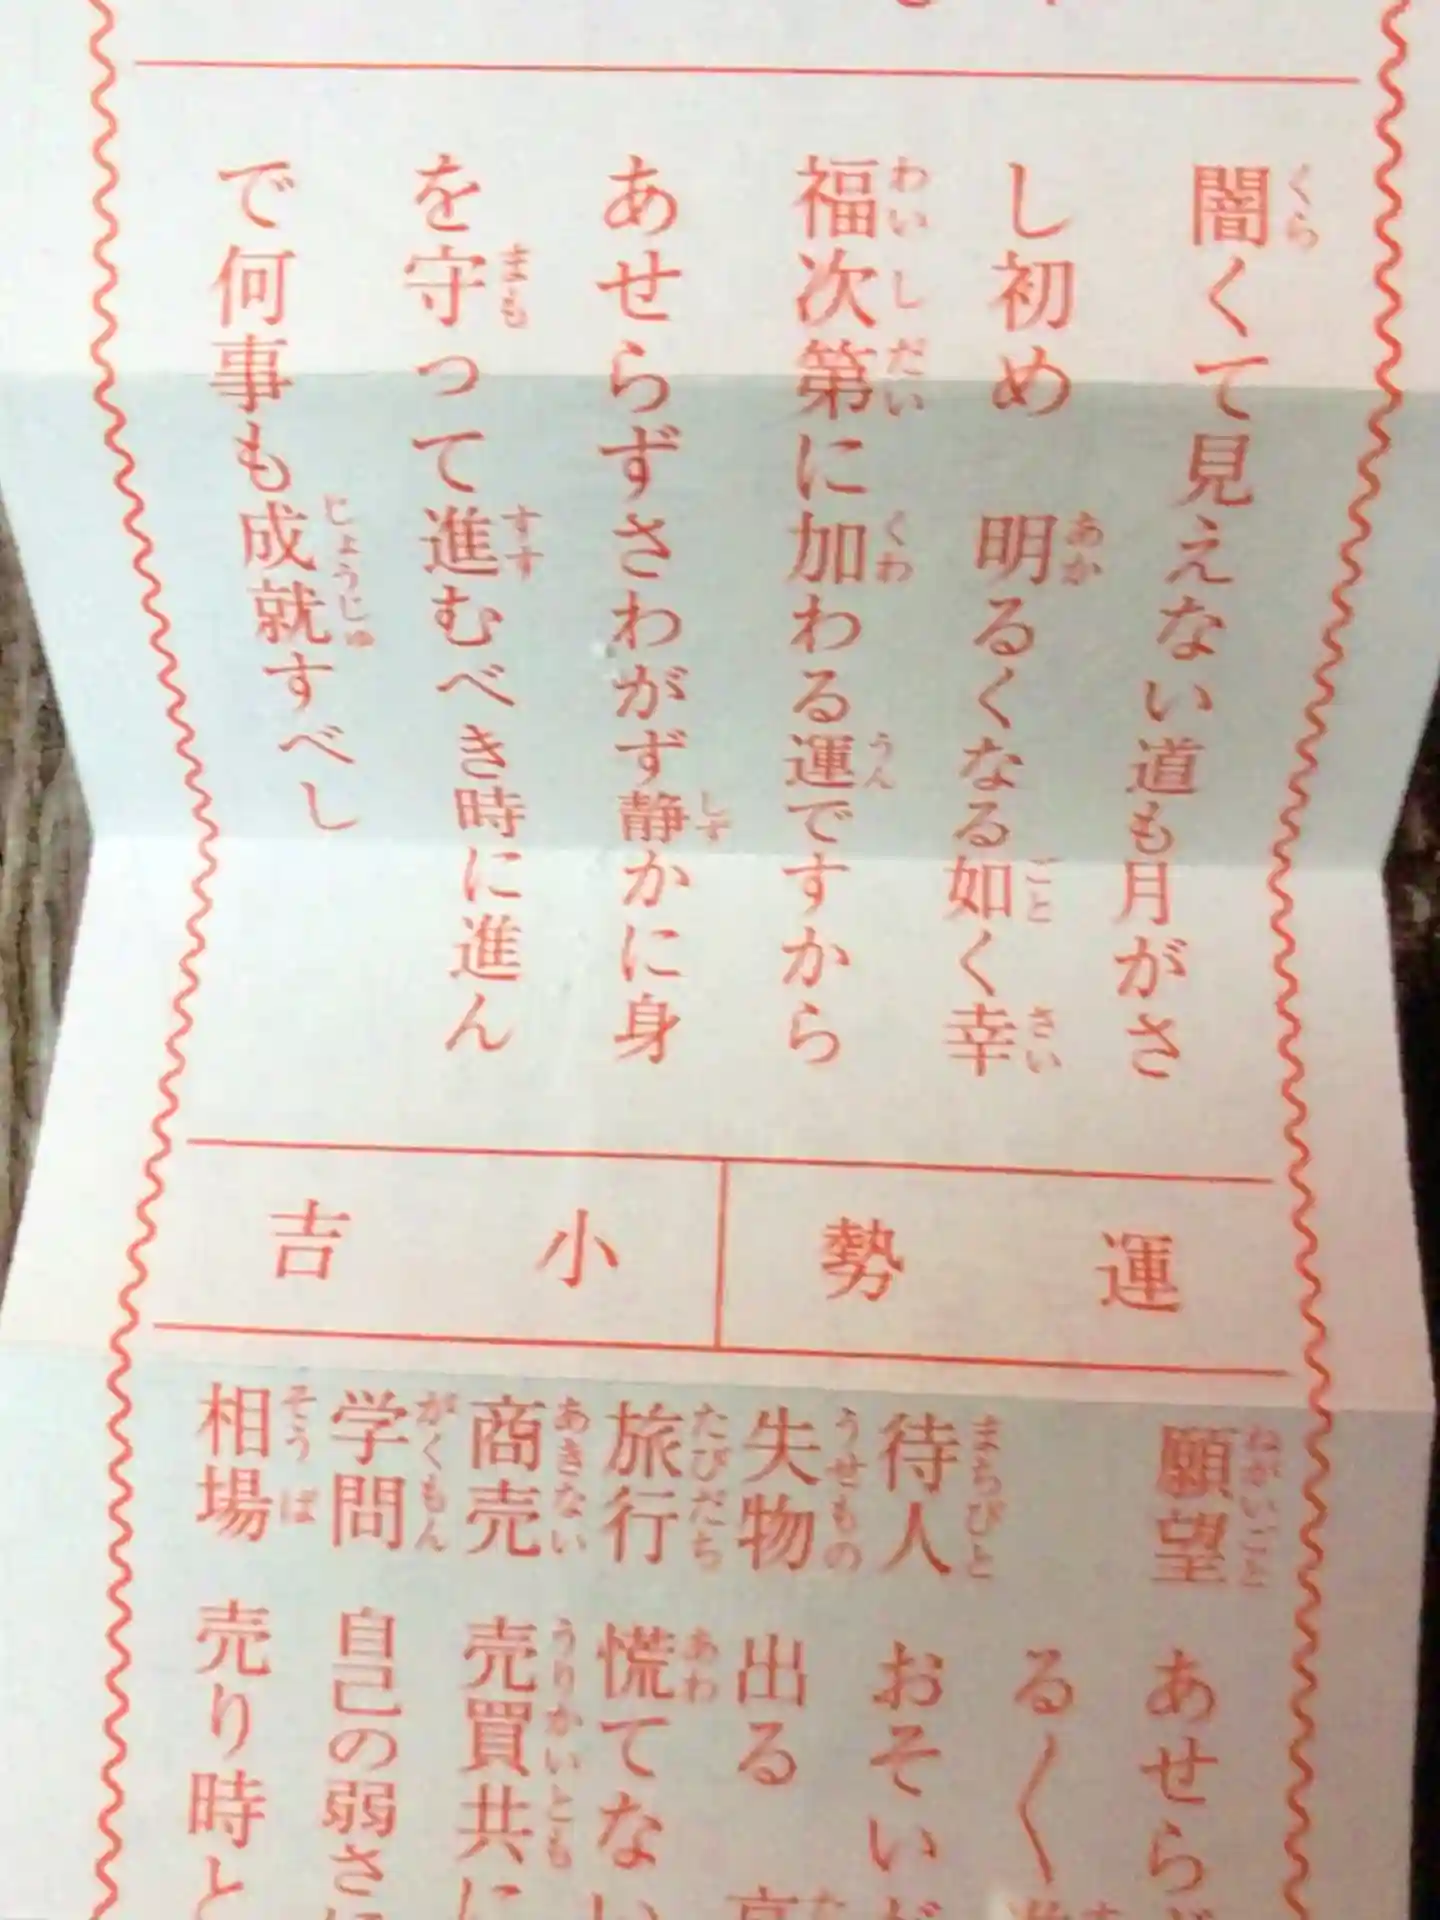 闇くて見えない道も月がさ
し初め 明るくなる如く幸
福次第に加わる運ですから
あせらずさわがず静かに身
を守って進むべき時に進ん
で何事も成就すべし
運勢 小吉
願望 あせら
る〳〵
待人 おそい
失物 出る
旅行 慌てない
商売 売買共に
学問 自己の弱さに
相場 売り時と